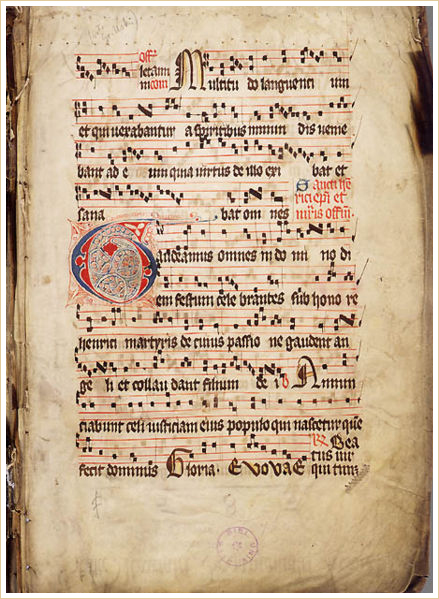 off.
letamini Multitu do languenti um
in com
et qui vexabantur a spiritibus inmun dis venie
bant ad e um quia virtus de illo exi bat et
sana bat om nes Sancti he
rici epi et
mris offm.
Gaudeamus omnes in do mi no di
em festum cele brantes sub hono re
henrici martyris de cuius passio ne gaudent an
ge li et collau dant filium de i Annun
ciabunt celi iusticiam eius populo qui nascetur que
fecit dominus Gloria. EVOVAE Bea
tus vir
qui tim